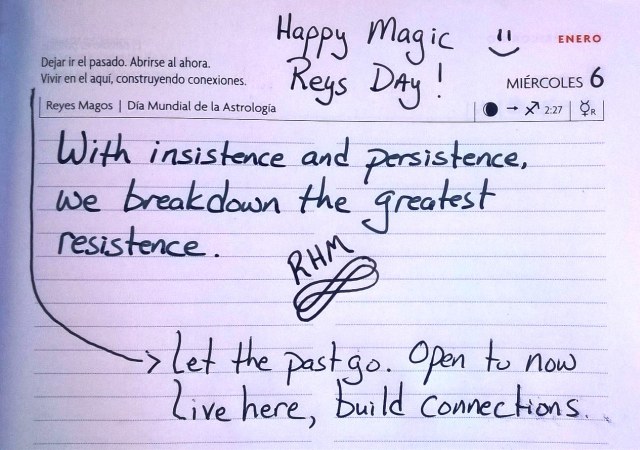 Happy Magic
Reys DAy!
ENERO
Dejar ir el pasado. Abrirse al ahora.
Vivir en el aquí, construyendo conexiones.
MIÉRCOLES 6
Reyes Magos | Día Mundial de la Astrología
→ ♐ 2:27 | ☿R
With insistence and persistence,
we breakdown the greatest
resistence.
RHM
Let the past go. Open to now
Live here, build connections.